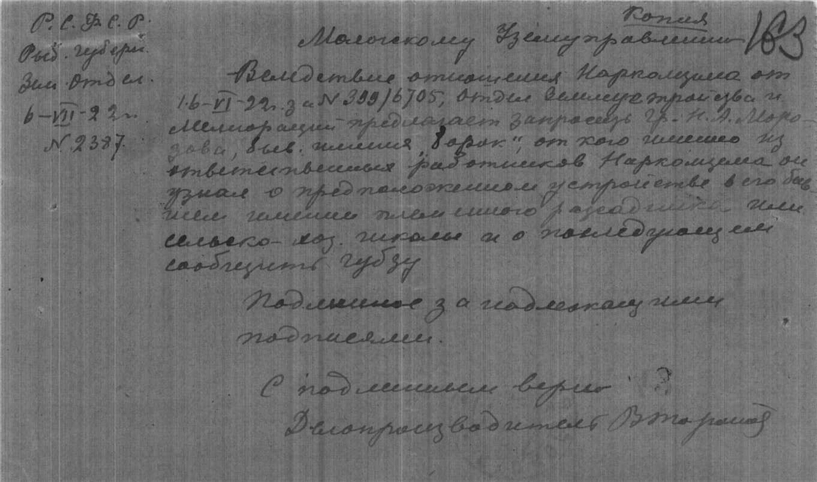 Копия
163
Р.С.Ф.С.Р.
Рыб. губерн.
Зем. Отдел.
6-VII-22 г.
N 2387.
Мологскому Уземуправлению
Вследствие отношения Наркомзема от
16-VI-22 г. за N 399/6705, отдел Землеустройства и
Мелиораций предлагает запросить гр-на Моро-
зова, быв. имения „Борок", от кого именно из
ответственных работников Наркомзема он
узнал о предположенном устройстве в его быв
шем имении племенного рассадника или
сельско-хоз. школы и о последующем
сообщить губзу
Подлинное за надлежащими
подписями.
С подлинным верно
Делопроизводитель